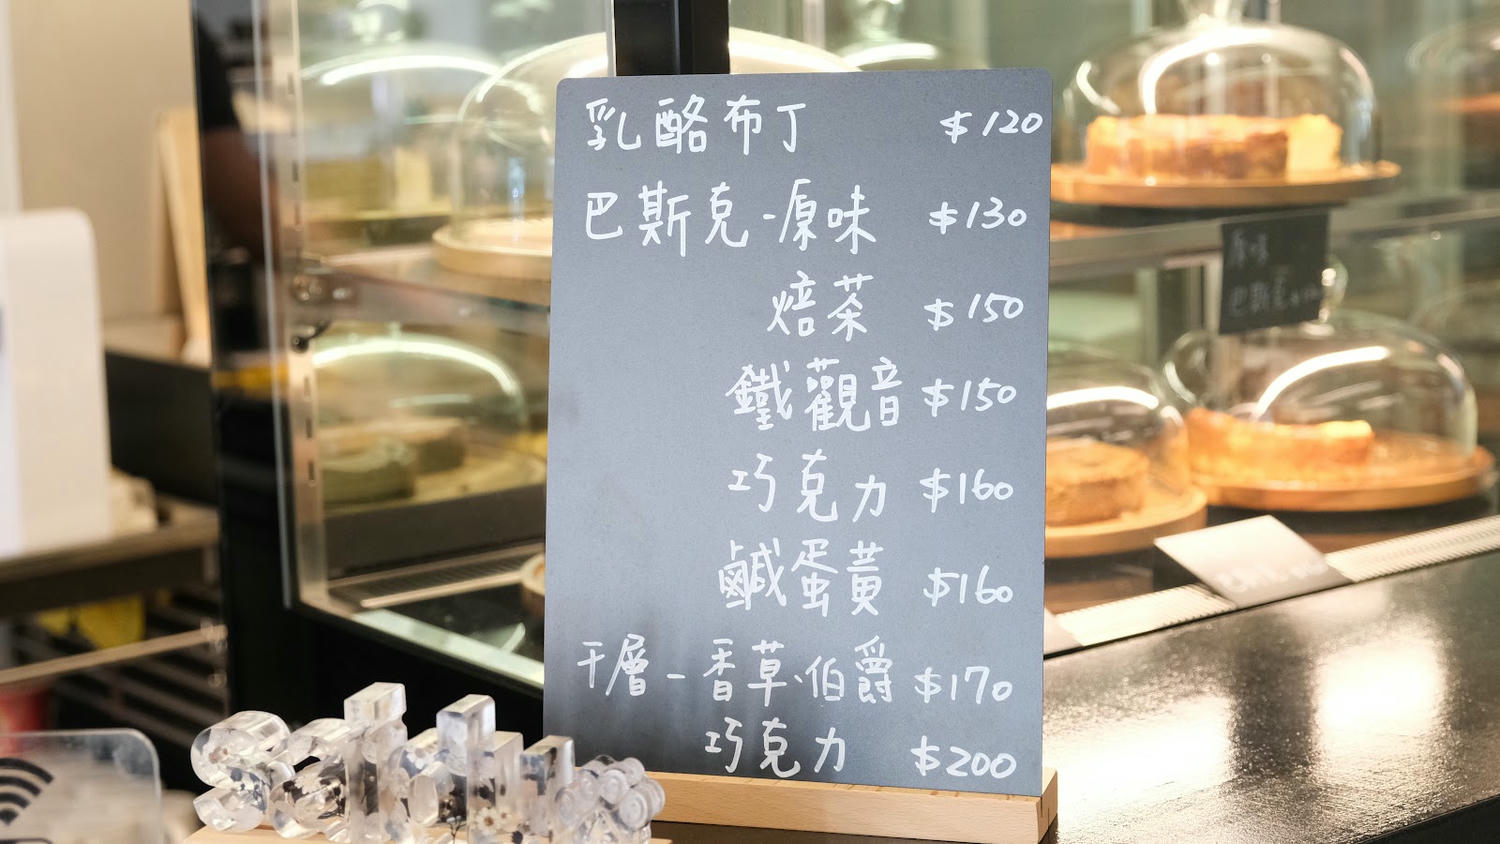 乳酪布丁 $120
巴斯克-原味 $130
焙茶 $150
鐵觀音 $150
巧克力 $160
鹹蛋黃 $160
千層-香草.伯爵 $170
巧克力 $200
原味
巴斯克